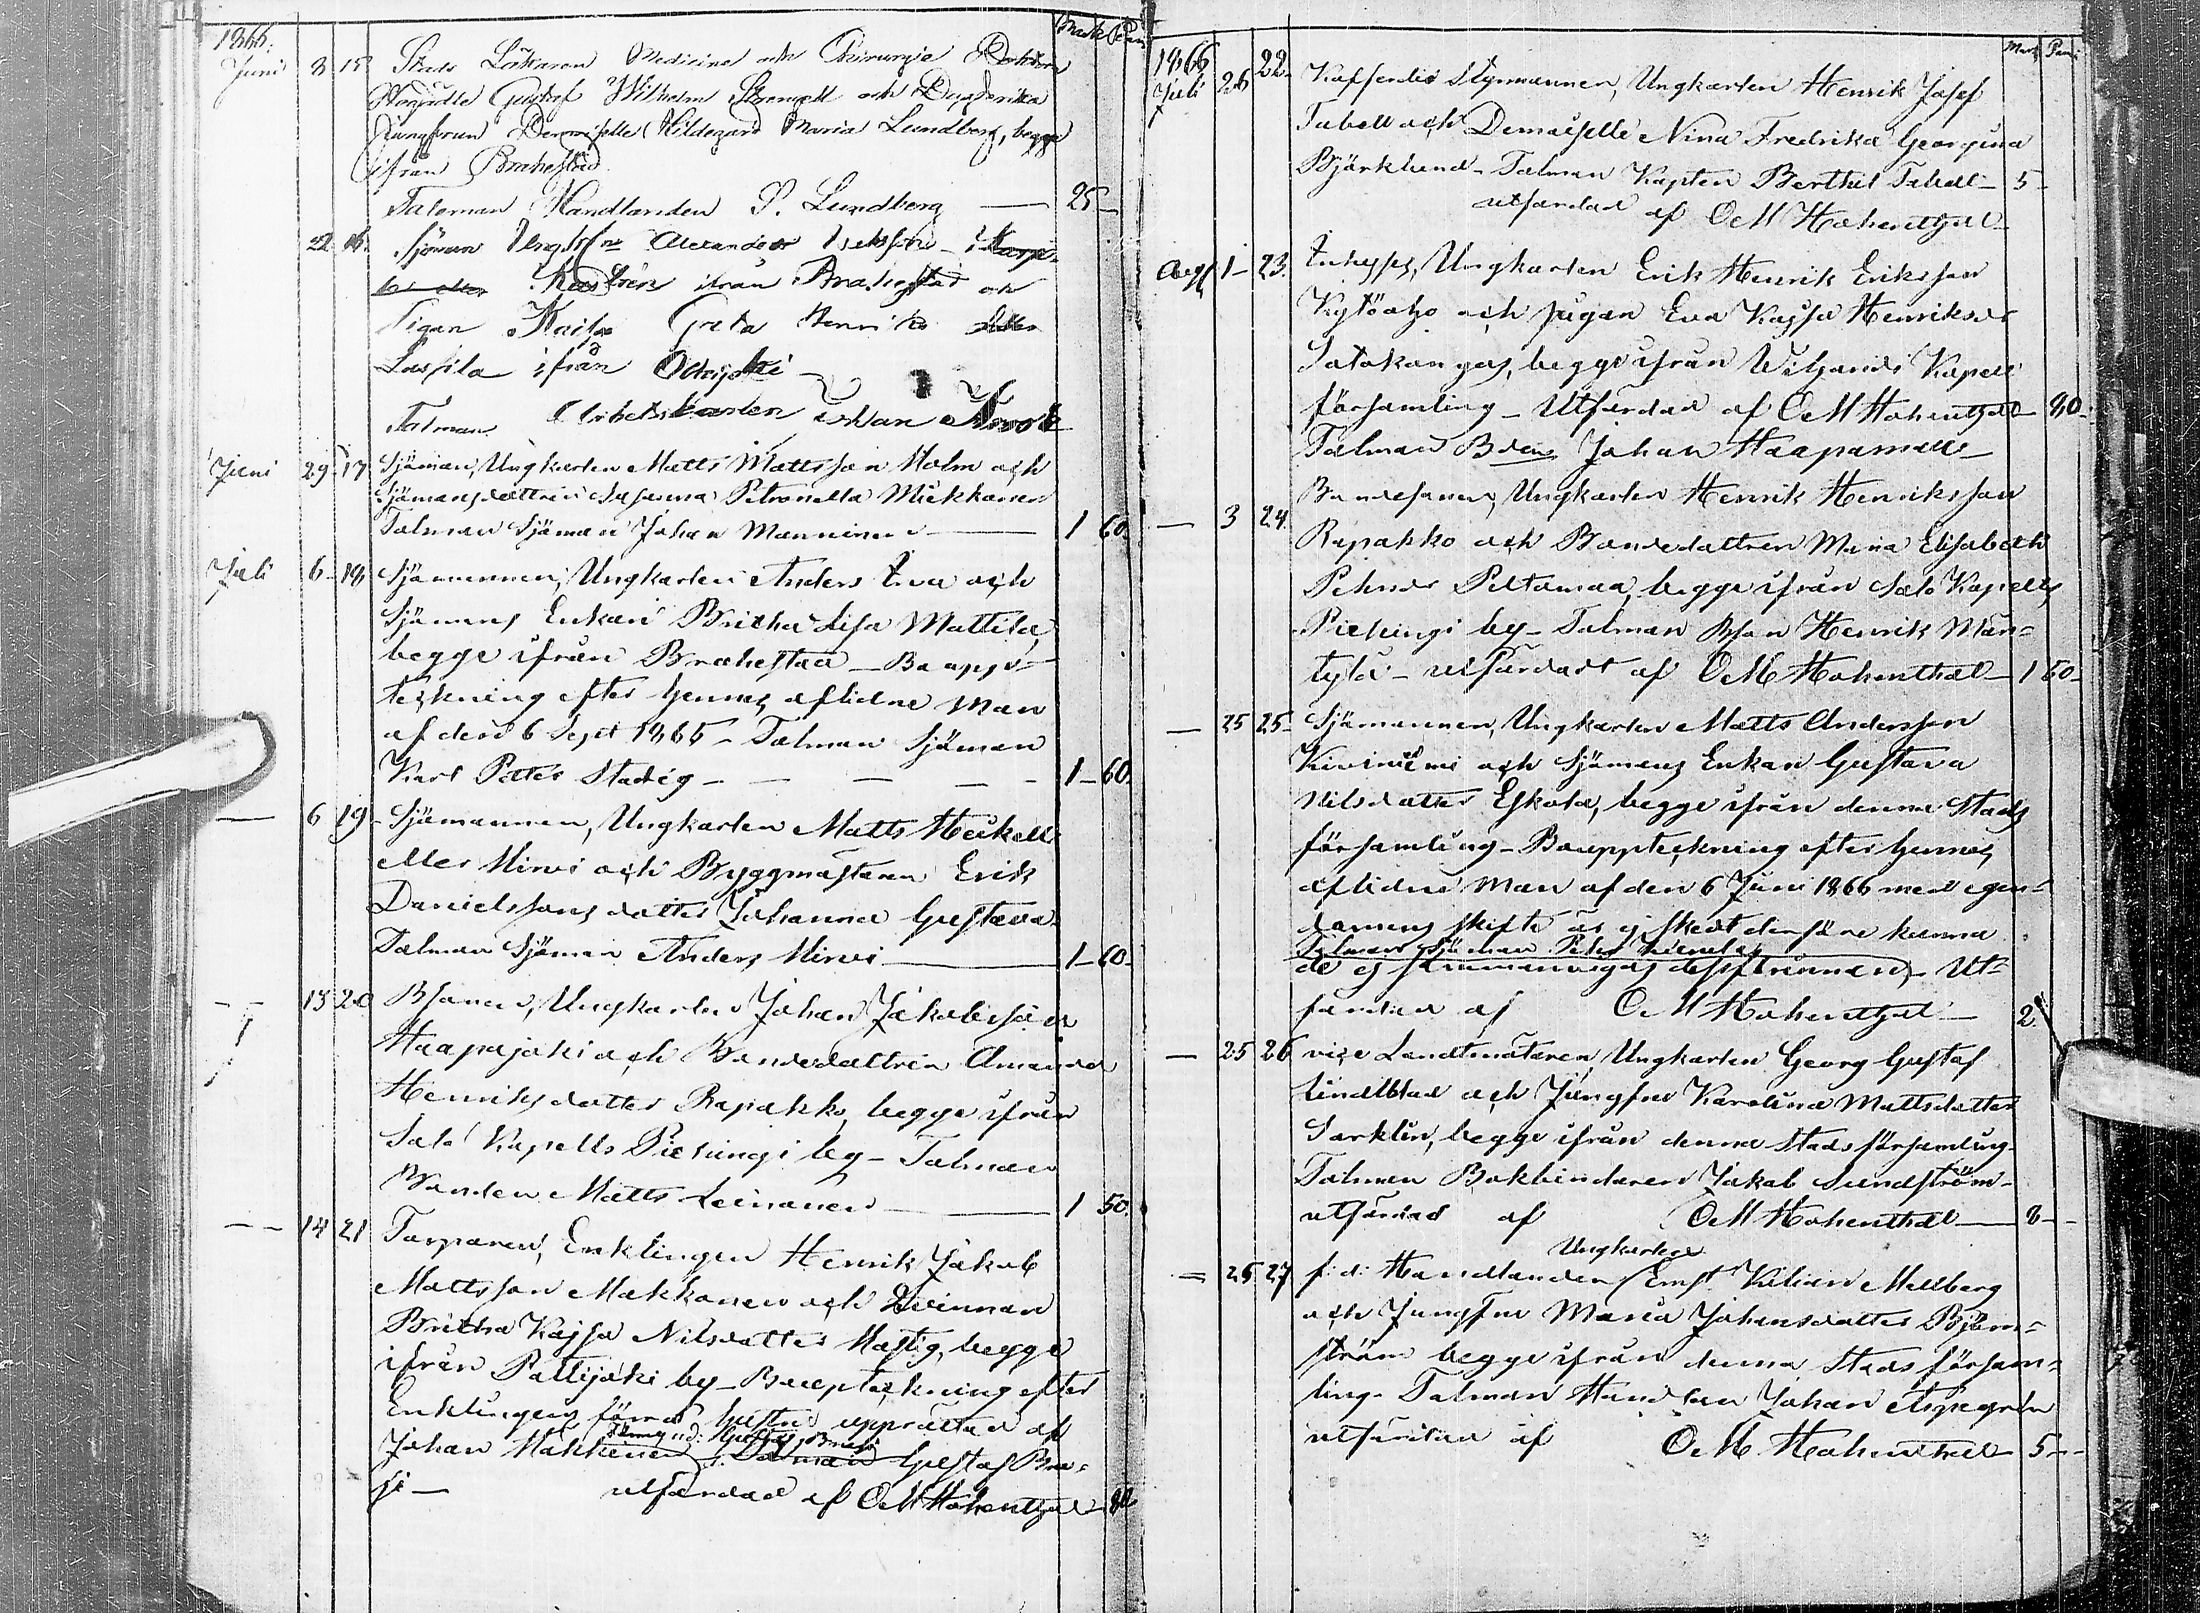 Mark Pen
1866.
Juni 8 15 Stads Läkaren Medicine och Chirurgie Doktorn
Gustaf Wilhelm Strengell och
Jungfrun Demoiselle Hildegard Maria Lundberg, begge
ifrån Brahestad
Taleman Handlanden P. Lundberg — 25 —
22 16. Sjöman Alexander
ifrån Brahestad och
Pigan Kaisa Greta Henriks
Lassila ifrån
Talman Arbetskarlen Johan
Juni 29 17 Sjöman, Ungkarlen Matts Mattsson Holm och
Sjömansdottren Susanna Petronella Mickkanen
Talman Sjöman Johan Manninen — 1 60.
Juli 6 18 Sjömannen, Ungkarlen Anders och
Sjömans Enkan Britha Lisa Mattila,
begge ifrån Brahestad — Bouppt-
teckning efter hennes aflidne man
af den 6 Sept 1865 — Talman Sjöman
Karl Petter Stadig — — — 1 — 60.
— 6 19 Sjömannen, Ungkarlen Matts Heikell
eller Hirvi och Byggmästaren Erik
Danielssons dotter Johanna Gustava.
Talman Sjöman Anders Hirvi — 1 — 60 —
— 13 20 Bsonen, Ungkarlen Johan Jakobsson
Haapajoki och Bondedottren Amanda
Henriksdotter Rapakko, begge ifrån
Salo Kapells Piehingi by — Talman
Bonden Matts Leinonen — 1 50.
— 14 21 Torparen, Enklingen Henrik Jakob
Mattsson Makkonen och Qvinnan
Britha Kajsa Nilsdotter Hastig, begge
ifrån Pattijoki by — Bouppteckning efter
Enklingens förra hustru upprättad af
Gustaf
Johan Makkonen Talman Gustaf Bra-
se — utfärdad af O M Hohenthal — 80
Mark Penni
1866
Juli 26 22. Kofferdi Styrmannen, Ungkarlen Henrik Josef
Tabell och Demoiselle Nina Fredrika Georgina
Björklund — Talman Kapten Berthel Tabell — 5 —
utfärdad af O M Hohenthal —
Aug 1 — 23. Inhyses, Ungkarlen Erik Henrik Eriksson
Kytöaho och pigan Eva Kajsa Henriksdr
Satokangas, begge ifrån Wihanti Kapell
församling — Utfärdad af O M Hohenthal — 80 —
Talman Bden Johan Haapamaa —
— 3 24. Bondesonen, Ungkarlen Henrik Henriksson
Rapakko och Bondedottren Maria Elisabeth
Pehrsdr Peltomaa, begge ifrån Salo Kapells
Piehingi by — Talman Bson Henrik Män-
tylä — utfärdadt af O M Hohenthal — 1 60 —
— 25 25 — Sjömannen, Ungkarlen Matts Andersson
Kiviniemi och Sjömans Enkan Gustava
Nilsdotter Eskola, begge ifrån denna Stads
församling — Bouppteckning efter hennes
aflidne man af den 6 Juni 1866 men egen-
domens skifte är ej skedt derföre kunna
Talman Sjöman Petter
de ej sammanvigas dessförinnan, — Ut-
färdad af O M Hohenthal — 2
— 25 26 vice Landtmätaren, Ungkarlen Georg Gustaf
Lindblad och Jungfrun Karolina Mattsdotter
Sarklin, begge ifrån denna Stads församling.
Talman Bokbindaren Jakob Sundström —
utfärdad af O M Hohenthal — 8 —
Ungkarlen
= 25 27 f: d: Handlanden Ernst Kilian Mellberg
och Jungfrun Maria Johansdotter Björn-
ström begge ifrån denna Stads försam-
ling. Talman Handlan Johan Aspegren
utfärdad af O M Hohenthal — 5 —